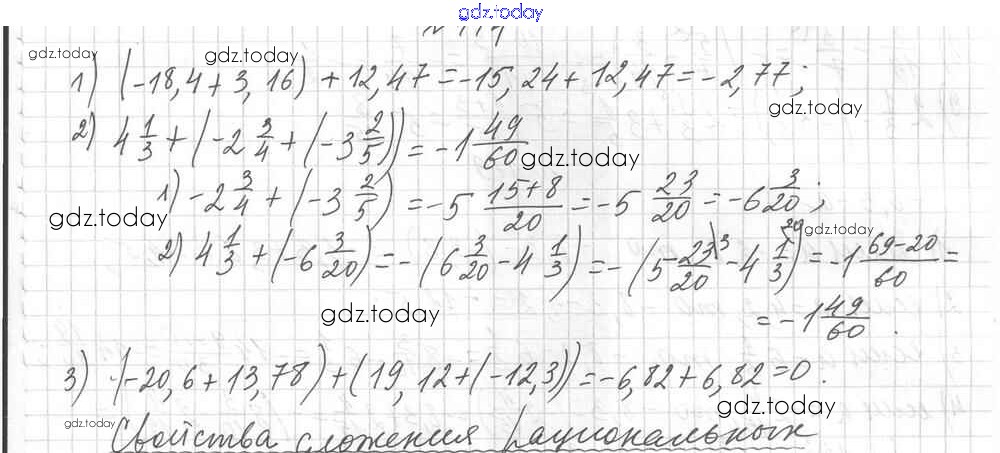 gdz.today
№ 114
gdz.today gdz.today
1) (-18,4+3,16)+12,47=-15,24+12,47=-2,77;
gdz.today
2) 4 1/3+(-2 3/4+(-3 2/5))=-1 49/60
gdz.today
1) -2 3/4+(-3 2/5)=-5 (15+8)/20=-5 23/20=-6 3/20;
gdz.today
2) 4 1/3+(-6 3/20)=-(6 3/20-4 1/3)=-(5 23/20\3-4 1/3\20)=-1 (69-20)/60=
gdz.today
=-1 49/60.
gdz.today
3) (-20,6+13,78)+(19,12+(-12,3))=-6,82+6,82=0.
gdz.today
gdz.today
Свойства сложения рациональных